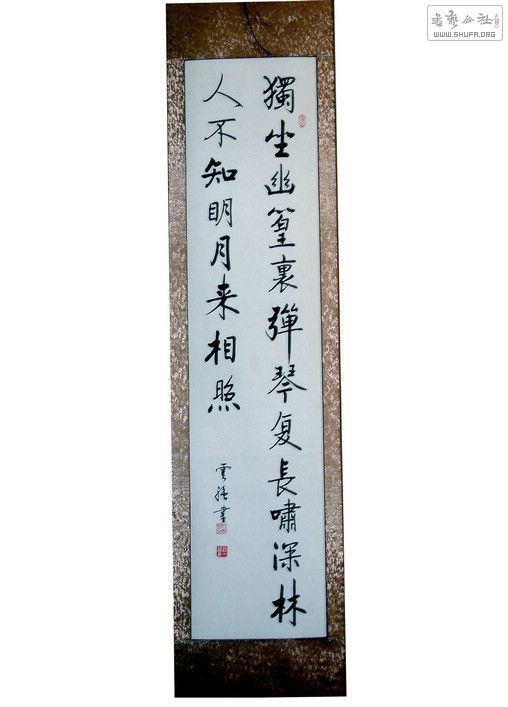 獨坐幽篁裏彈琴复長嘯深林
人不知明月来相照
書藝公社
WWW.SHUFA.ORG